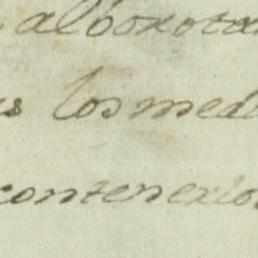 alborota
los med
contenerlo